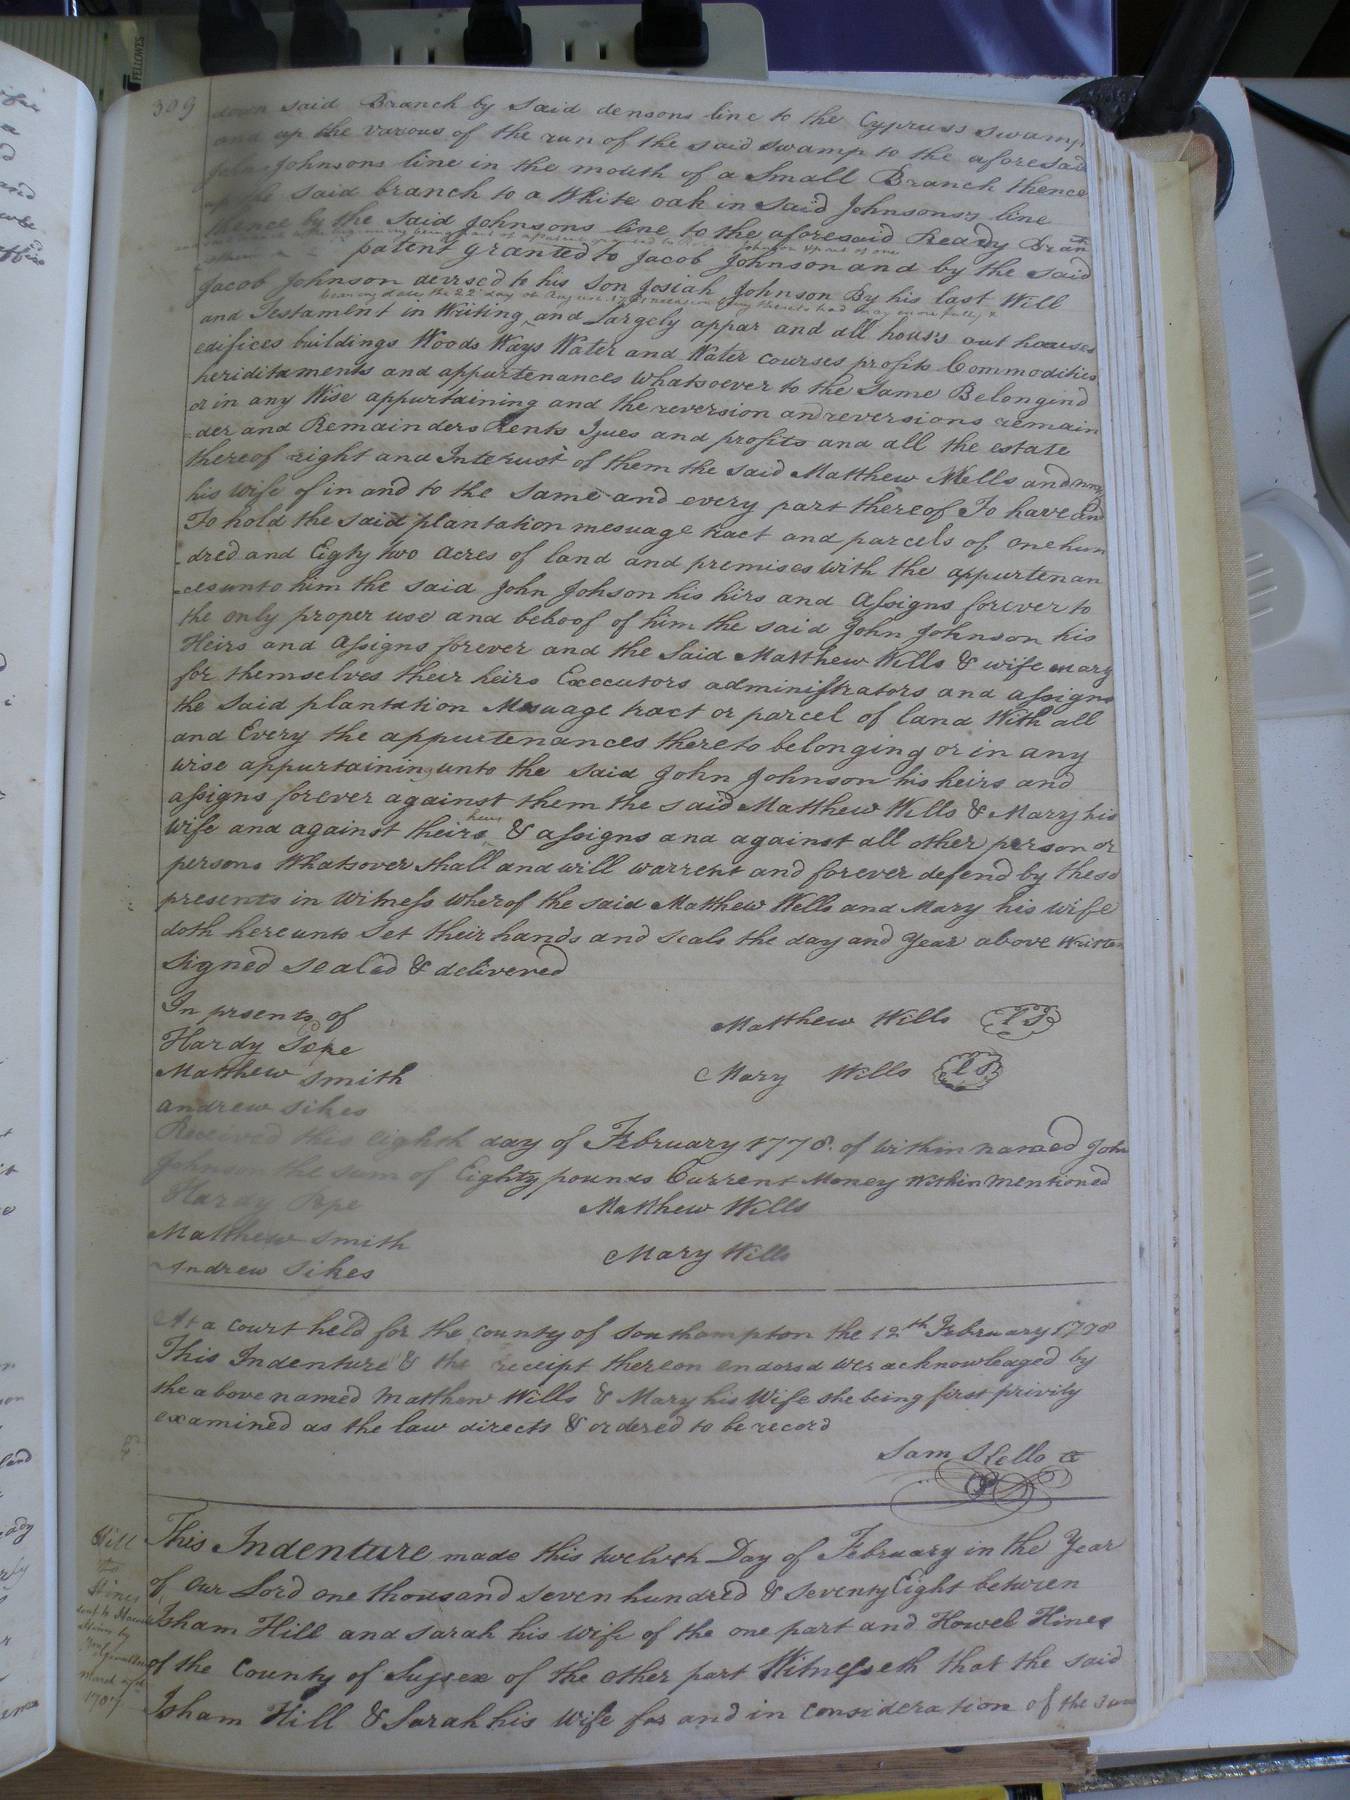 309
down said Branch by said densons line to the Cypruss swamp
and up the varous of the run of the said swamp to the aforesaid
John Johnsons line in the mouth of a Small Branch thence
up the said branch to a White oak in said Johnsons line
thence by the said Johnsons line to the aforesaid Ready Bran
patent granted to Jacob Johnson and by the said
Jacob Johnson devised to his son Josiah Johnson By his last Will
bearing date the 22 day of August
and Testament in Writing and Largely appar and all houses out houses
edifices buildings Woods Ways Water and Water courses profits Commodities
heriditaments and appurtenances whatsoever to the Same Belongend
or in any Wise appurtaining and the reversion and reversions remain
=der and Remainders Rents Ijues and profits and all the estate
thereof right and Interust of them the said Matthew Wells and
his Wife of in and to the Same and every part thereof To have and
To hold the said plantation mesuage tract and parcels of one hun
=dred and Eigty two acres of land and premises with the appurtenan
=ces unto him the said John Johson his hirs and Assigns forever to
the only proper use and behoof of him the said John Johnson his
Heirs and Assigns forever and the Said Matthew Wills & wife mary
for themselves their heirs Executors administrators and assigns
the said plantation Mesuage tract or parcel of land With all
and Every the appurtenances thereto belonging or in any
wise appurtaining unto the said John Johnson his heirs and
assigns forever against them the said Matthew Wills & Mary his
wife and against theirs heirs & assigns and against all other person or
persons Whatsover shall and will warrent and forever defend by these
presents in Witness wherof the said Matthew Wells and Mary his wife
doth hereunto set their hands and seals the day and Year above written
signed sealed & delivered
In prsents of
Matthew Wills LS
Hardy Pope
Mary Wills LS
Matthew smith
andrew sikes
Received this eighth day of February 1778. of within named John
Johnson the sum of Eighty pounds Current Money Within mentioned
Hardy Pope
Matthew Wills
Matthew smith
Mary Wills
Andrew sikes
At a court held for the county of Southampton the 12th February 1778
This Indenture & the receipt thereon endorsd wes acknowledged by
the above named Matthew Wills & Mary his Wife she being first privity
examined as the law directs & ordered to be record
Sam Kello
Hill
to
Hines
This Indenture made this twelvth Day of February in the Year
of Our Lord one thousand seven hundred & seventy Eight between
Isham Hill and sarah his wife of the one part and Howel Hines
of the County of Sussex of the other part Witnesseth that the said
Isham Hill & Sarah his Wife for and in consideration of the sum